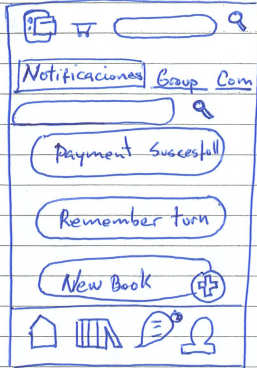 Notificaciones Group Com
Payment Succesfull
Remember turn
New Book